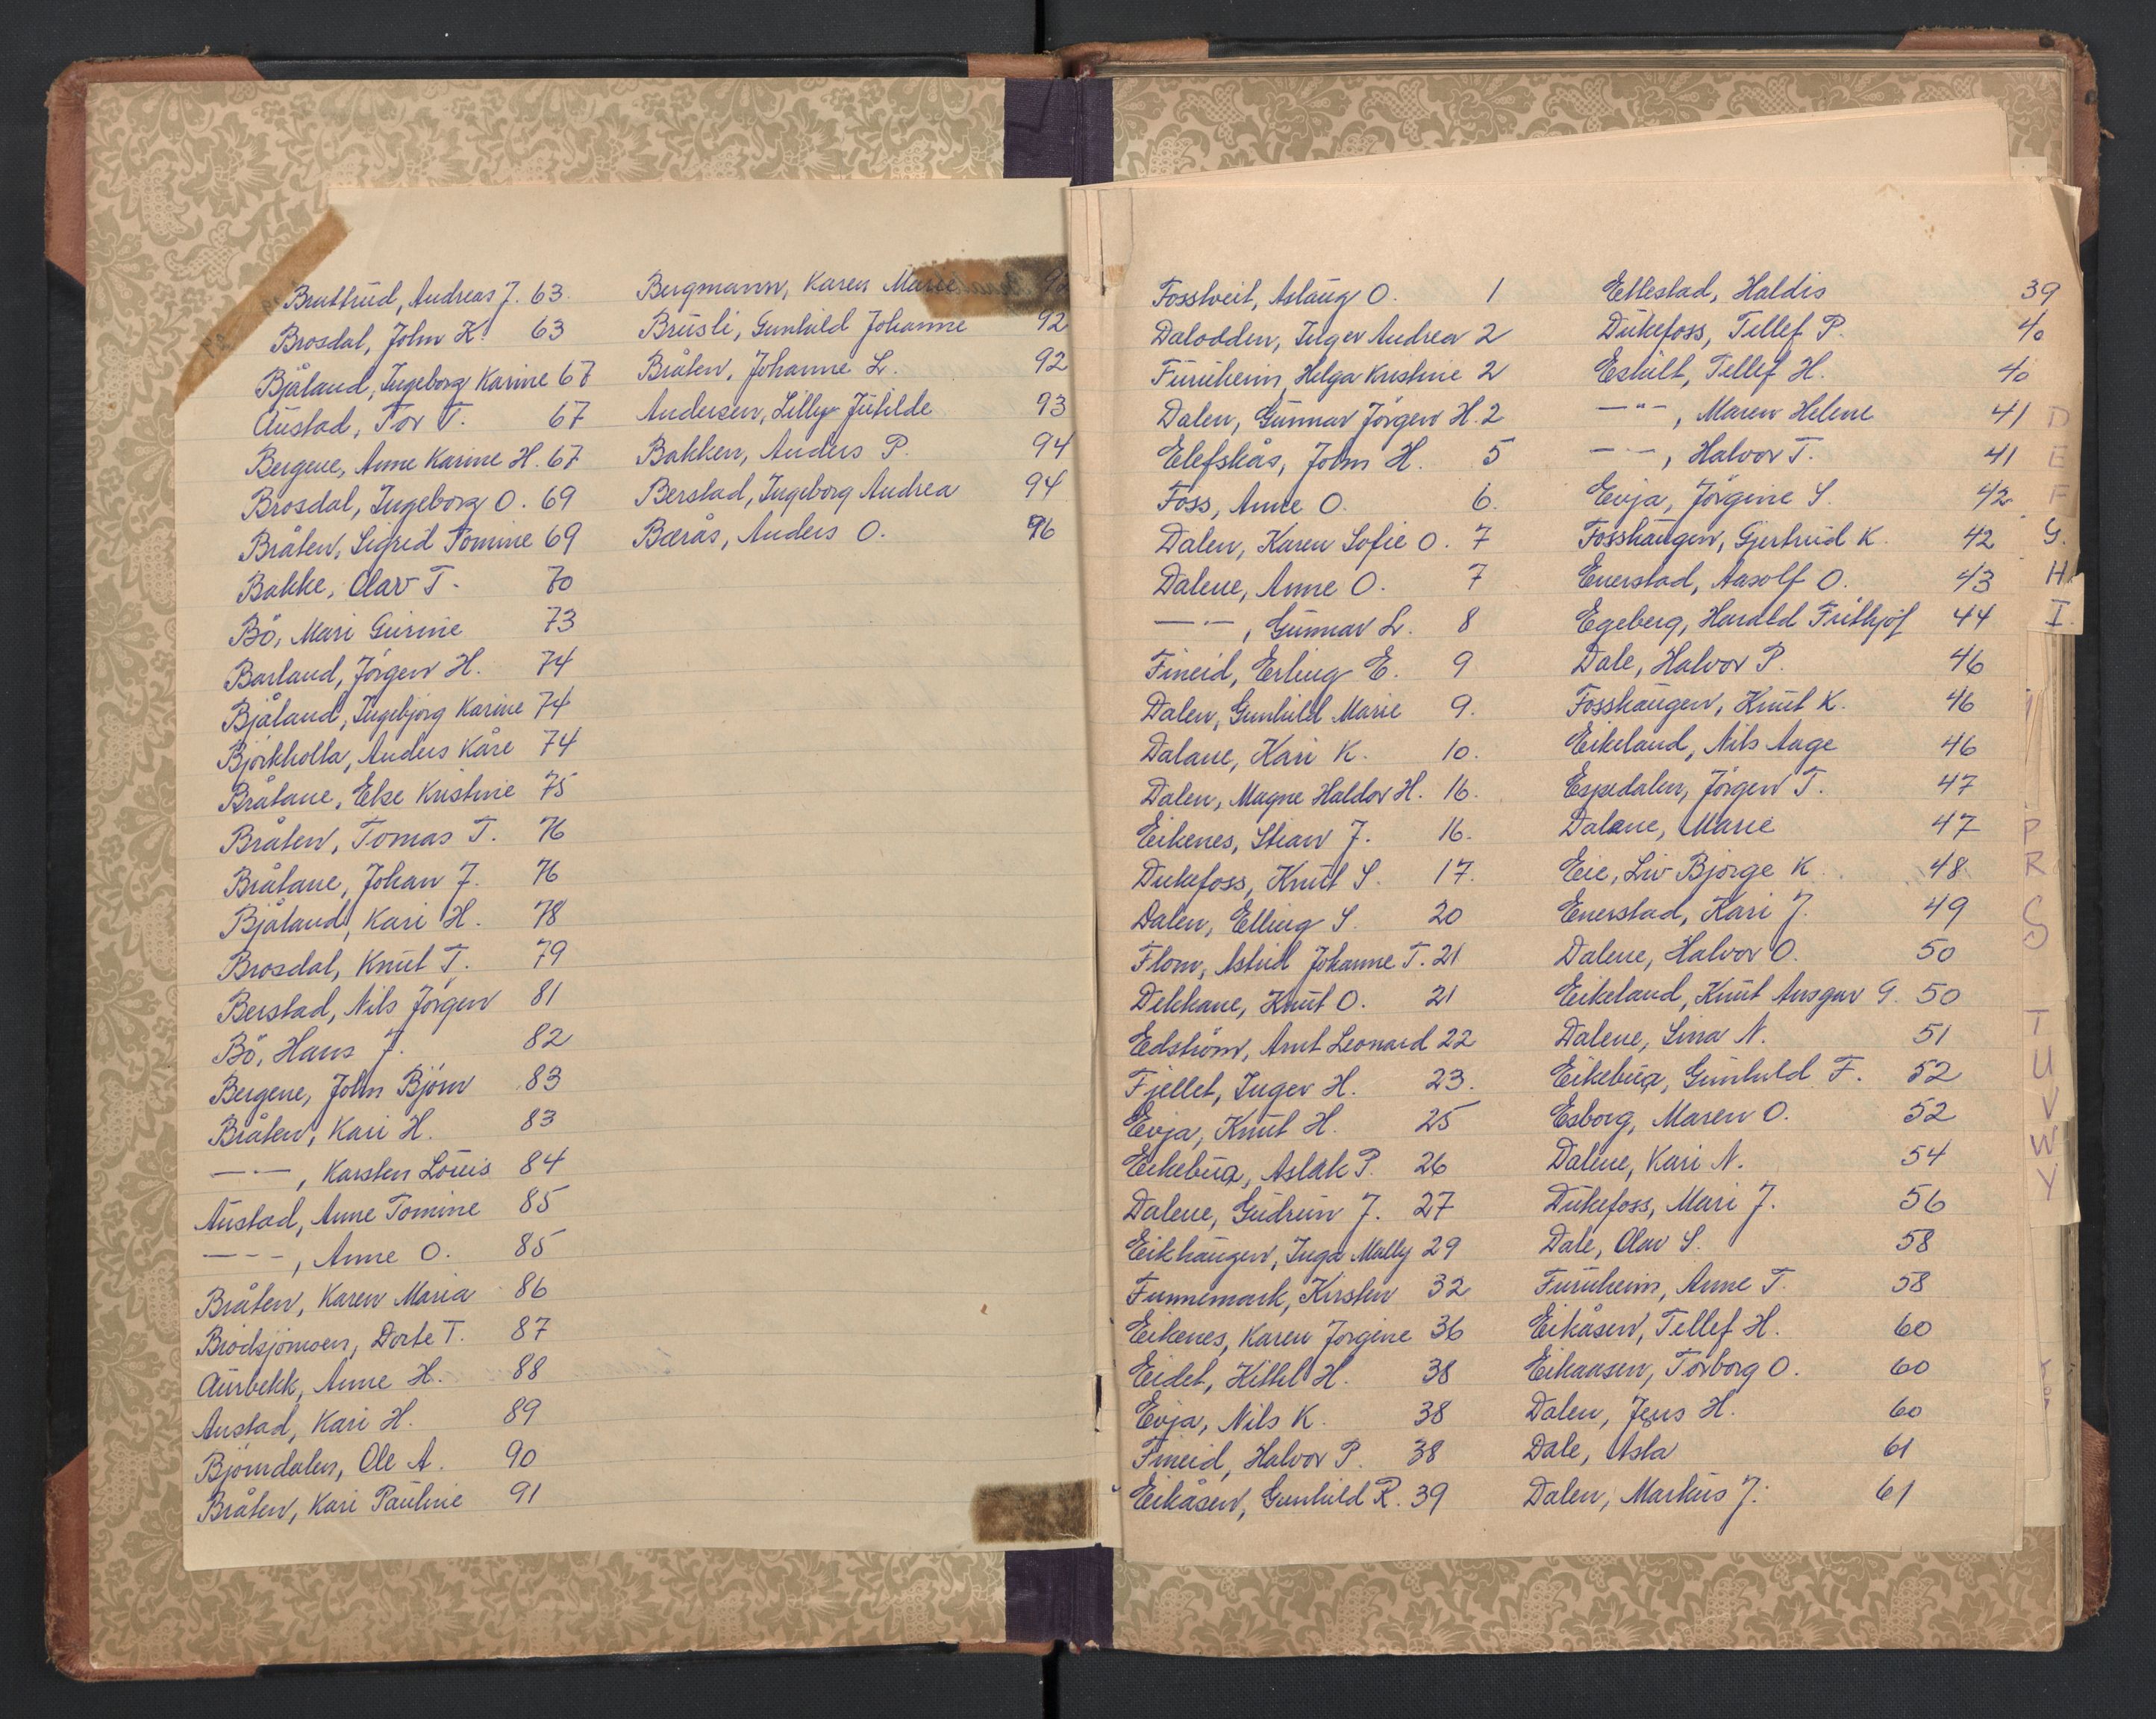 Brattrud, Andreas J. 63.
Brosdal, John K. 63
Bjåland, Ingeborg Karine 67
Austad, Tor T. 67
Bergene, Anne Karine H. 67
Brosdal, Ingeborg O. 69
Bråten, Sigrid Tomine 69
Bakke, Olav T. 70
Bö, Mari Gurine 73
Barland, Jörgen H. 74
Bjåland, Ingebjörg Karine 74
Björkholta, Anders Kåre 74
Bråtane, Else Kristine 75
Bråten, Tomas T. 76
Bråtane, Johan J. 76
Bjåland, Kari H. 78
Brosdal, Knut T. 79
Berstad, Nils Jörgen 81
Bö, Hans J. 82
Bergene, John Björn 83
Bråten, Kari H. 83
—"—, Karsten Louis 84
Austad, Anne Tomine 85
—"—, Anne O. 85
Bråten, Karen Maria 86
Brödsjömoen, Dorte T. 87
Aurbekk, Anne H. 88
Austad, Kari H. 89
Björndalen, Ole A. 90
Bråten, Kari Pauline 91
Bergmann, Karen Marie 92
Brusli, Gunhild Johanne 92
Bråten, Johanne L. 92
Andersen, Lilly Jutilde 93
Bakken, Anders P. 94
Berstad, Ingeborg Andrea 94
Bærås, Anders O. 96
Fosstveit, Aslaug O. 1
Dalodden, Inger Andrea 2
Furuheim, Helga Kristine 2
Dalen, Gunnar Jörgen H. 2
Elefskås, John H. 5
Foss, Anne O. 6.
Dalen, Karen Sofie O. 7
Dalene, Anne O. 7
—"—, Gunnar L. 8
Fineid, Erling E. 9
Dalen, Gunhild Marie 9.
Dalane, Kari K. 10.
Dalen, Magne Haldor H. 16.
Eikenes, Stian J. 16.
Dukefoss, Knut S. 17.
Dalen, Elling S. 20
Flom, Astrid Johanne T. 21
Dekkane, Knut O. 21
Edström, Arnt Leonard 22
Fjellet, Inger H. 23.
Evja, Knut H. 25
Eikebua, Aslak P. 26
Dalene, Gudrun J. 27
Eikhaugen, Inga Mally 29
Funnemark, Kirsten 32
Eikenes, Karen Jörgine 36
Eidet, Kittel H. 38
Evja, Nils K. 38
Fineid, Halvor P. 38
Eikåsen, Gunhild R. 39
Ettestad, Haldis 39
Dukefoss, Tellef P. 40
Eskilt, Tellef H. 40
—"—, Maren Helene 41
—"—, Halvor T. 41
Evja, Jörgine S. 42
Fosshaugen, Gjertrud K. 42
Enerstad, Aasolf O. 43
Egeberg, Harald Frithjof 44
Dale, Halvor P. 46
Fosshaugen, Knut K. 46
Eikeland, Nils Aage 46
Espedalen, Jörgen T. 47
Dalane, Marie 47
Eie, Liv Bjørge K. 48
Enerstad, Kari J. 49
Dalene, Halvor O. 50
Eikeland, Knut Ansgar G. 50
Dalene, Sina N. 51
Eikebua, Gunhild F. 52
Esborg, Maren O. 52
Dalene, Kari N. 54
Dukefoss, Mari J. 56
Dale, Olav S. 58
Furuheim, Anne T. 58
Eikåsen, Tellef H. 60
Eikaasen, Torborg O. 60
Dalen, Jens H. 60
Dale, Asta 61
Dalen, Markus J. 61
D
E
F
G.
H.
I.
P
R
S
T
U
V
W
Y